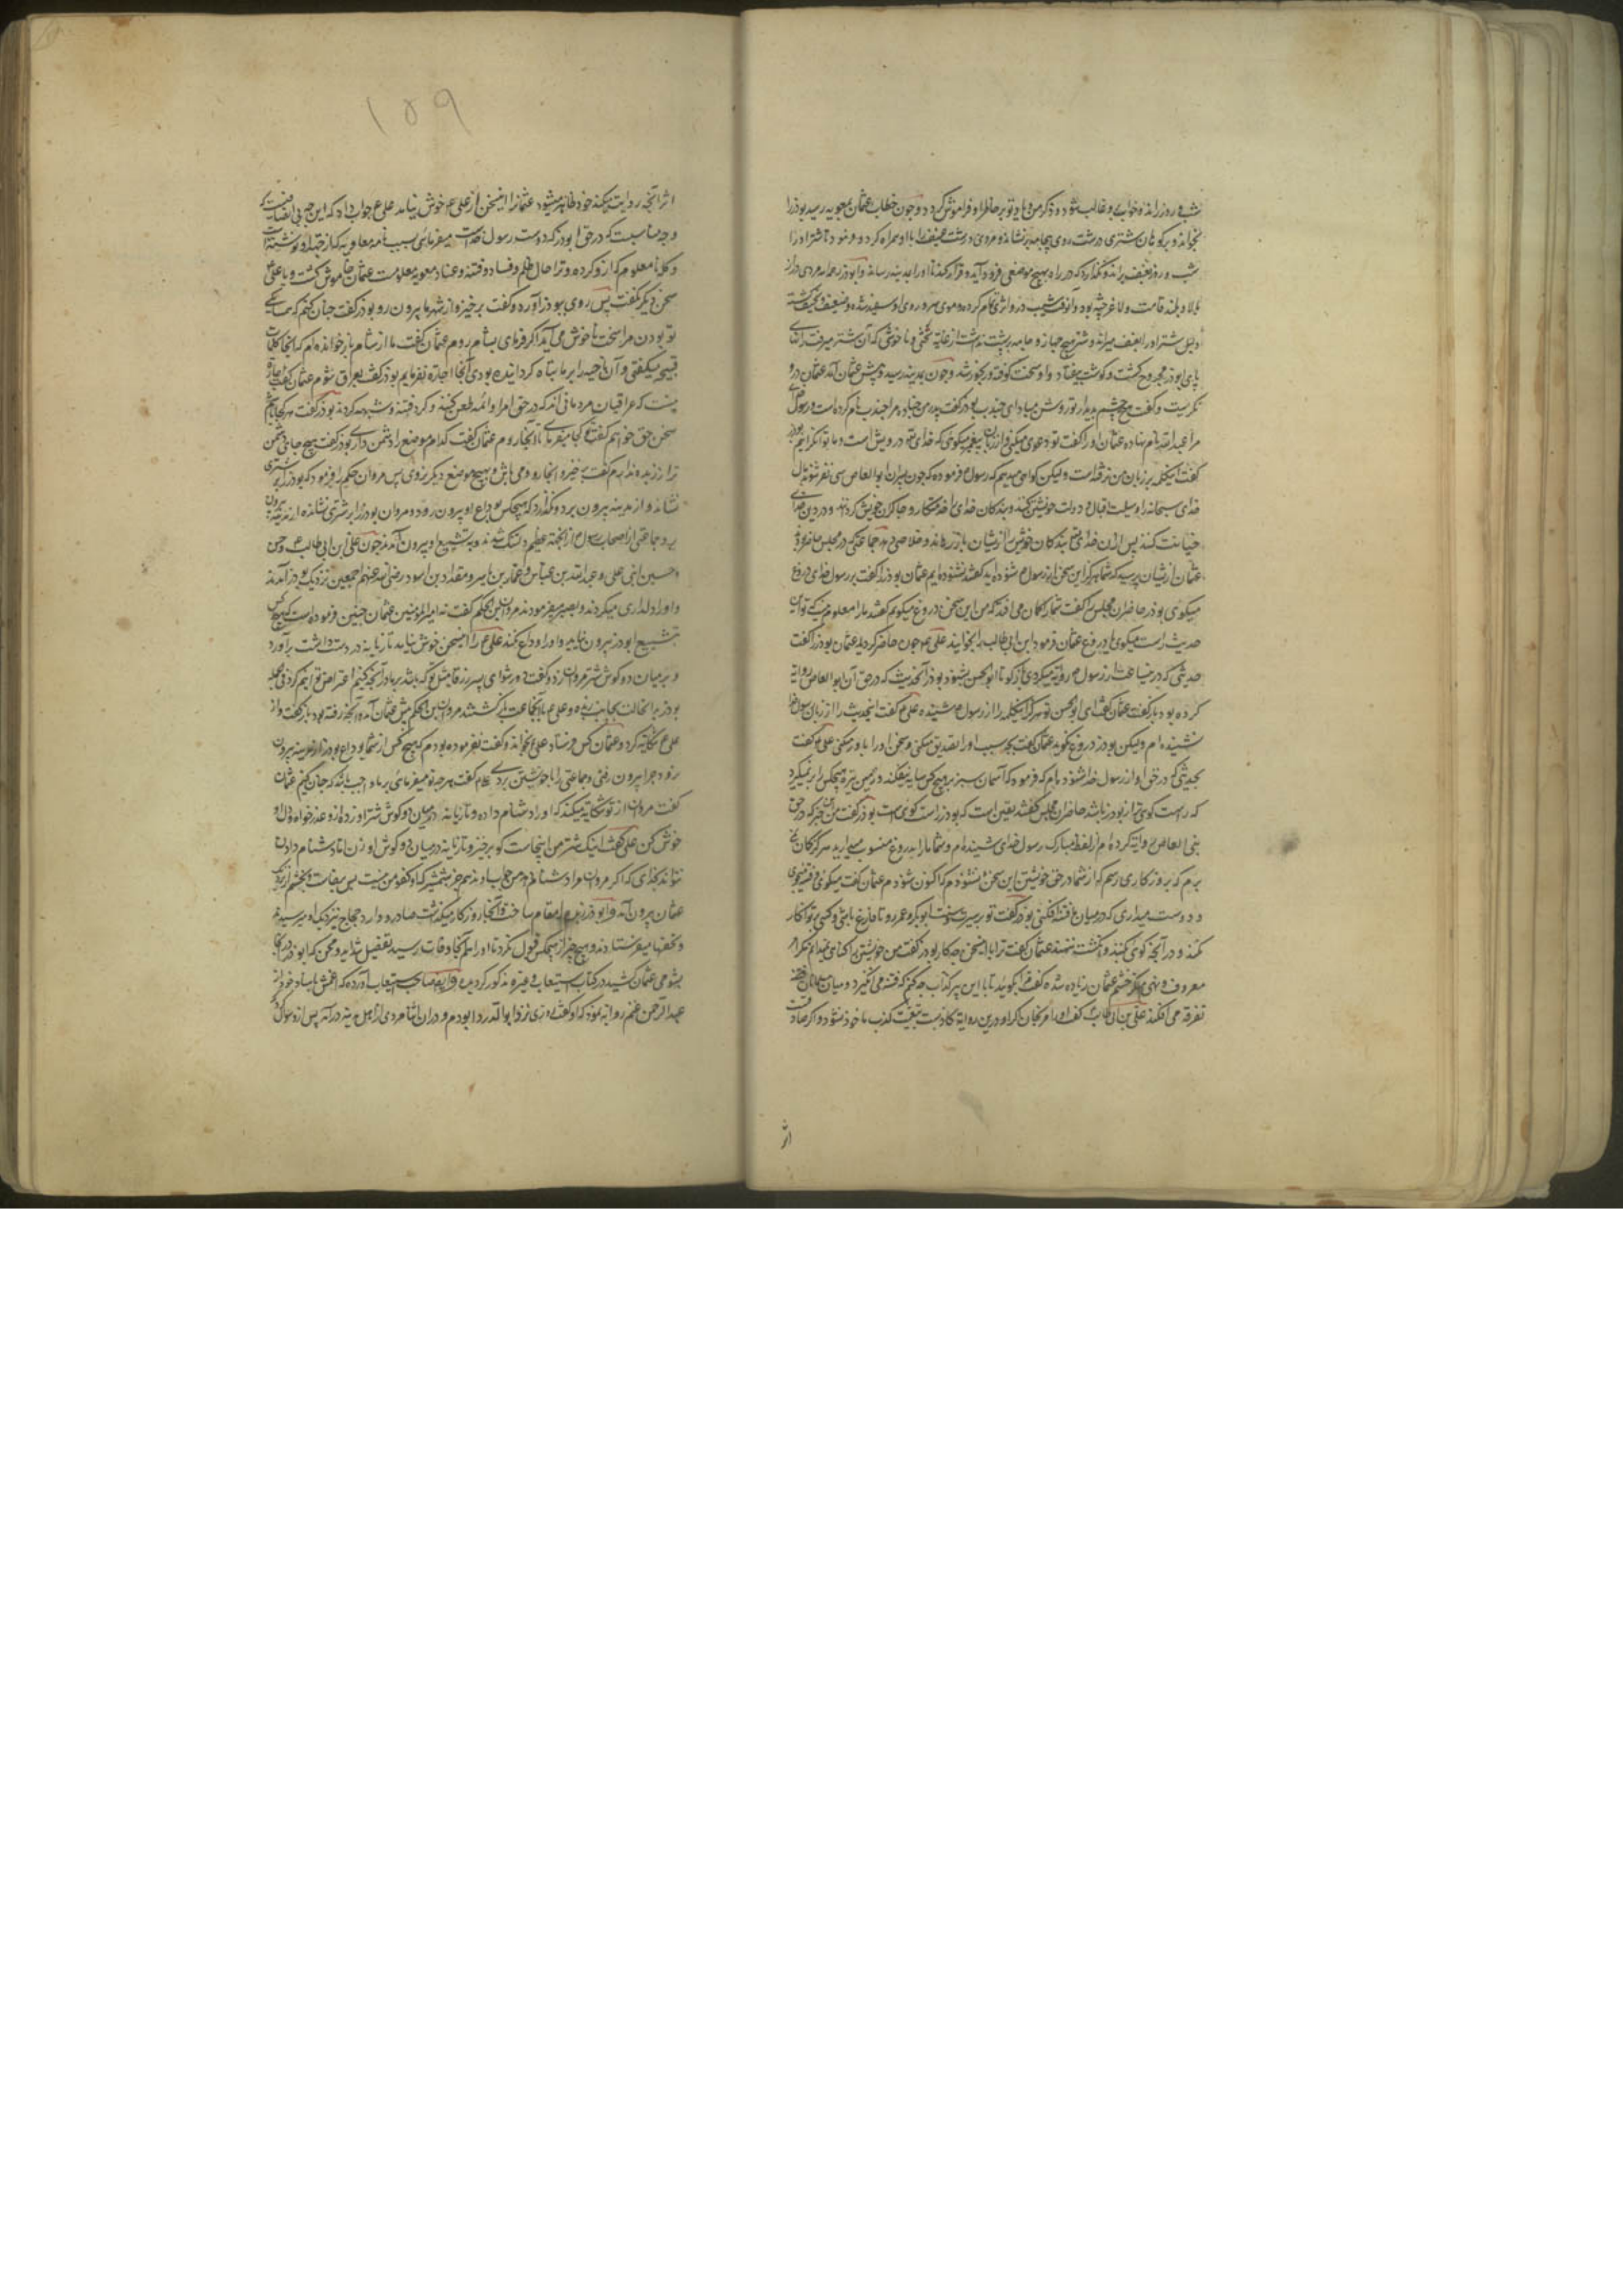 شب و روز راند خواب بر وی غالب شود و ذکر من و یاد تو بر خاطر او فراموش کردد و چون خطاب عثمان بمعویه رسید بوذر را
بخواند و بر کوهان شتری درشت روی بنشاند و مردی درشت عنیف را با او همراه کرد و فرمود تا شتر او را
شب و روز بعنف براند و نکذارد که در راه بهیچ موضعی فرود آید و قرار کند تا او را بمدینه رساند و ابوذر رحمه الله مردی دراز
بالا و بلند قامت و لاغر بود و موی سر و روی او سفید شده و ضعیف و نحیف کشته
دلیل شتر او را بعنف میراند و شتر هیچ جهاز و جامه بر پشت نداشت از غایة سختی و ناخوشی که آن شتر میرفت رانهای
پای ابوذر مجروح کشت و کوشت بیفتاد و او سخت کوفته و رنجور شد و چون بمدینه رسید و پیش عثمان آمد عثمان در و
نکریست و کفت هیچ چشم بدیدار تو روشن مباد ای جندب بوذر کفت پدر من جناده مرا جندب نام کرده است و رسول
مرا عبد الله نام نهاده عثمان او را کفت تو دعوی میکنی و از زبان پیغمبر میکوئی که خدای درویش است و ما توانکرانیم بوذر
کفت اینکلمه بر زبان من نرفته است ولیکن کواهی میدهم که رسول فرموده که چون پسران ابو العاص سی نفر شوند مال
خدای سبحانه را وسیلت اقبال و دولت خویش کنند و بندکان خدای را خدمتکار و چاکران خویش کردانند و در دین خدای
خیانت کنند پس از آن خدای بندکان خویش را از یشان باز رهاند و خلاصی دهد جماعتی که در مجلس حاضر بودند
عثمان از یشان پرسید که شما هرکز این سخن از رسول شنوده اید کفتند نشنوده ایم عثمان بوذر را کفت بر رسول خدای دروغ
میکوی بوذر حاضران مجلس را کفت شما را کمان می افتد که من این سخن دروغ میکویم کفتند ما را معلوم نیست که تو این
حدیث راست میکوی یا دروغ عثمان فرمود ابن ابی طالب را بخوانید علی چون حاضر کردید عثمان بوذر را کفت
حدیثی که درین ساعت از رسول روایة میکردی باز کو تا ابو الحسن بشنود بوذر آنحدیث که در حق آل ابو العاص روایة
کرده بود باز کفت عثمان کفت ای ابو الحسن تو هرکز اینکلمه را از رسول شنیده علی کفت اینحدیث را از زبان رسول خدا
نشنیده ام ولیکن بوذر دروغ نکوید عثمان کفت بچه سبب او را تصدیق میکنی و سخن او را باور میکنی علی کفت
بحدیثی که در حق او از رسول خدا شنوده ام که فرمود که آسمان سبز بر هیچ کس سایه نیفکند و زمین تیره هیچکس را بر نمیکیرد
که راست کوی تر از بوذر باشد حاضران مجلس کفتند یقین است که بوذر راست کوی است بوذر کفت من خبر که در حق
بنی العاص روایة کرده ام از لفظ مبارک رسول خدای شنیده ام و شما ما را بدروغ منسوب میدارید هرکز کمان
نبرم که بروزکاری رسم که از شما در حق خویشتن این سخن بشنوم که اکنون شنودم عثمان کفت میکوئی و فتنه جوی
و دوست میداری که در میان ما فتنه افکنی بوذر کفت تو بر سیرت ابو بکر و عمر رو تا فارغ باشی و کسی بر تو انکار
نکند و در آنچه کوی کنند و انکشت ننهند عثمان کفت ترا با اینسخن چه کار بوذر کفت من خویشتن را کناهی نمیدانم مکر امر
معروف و نهی منکر خشم عثمان زیاده شد کفت مرا بکوئید تا با این پیر کذاب چه کنم که فتنه می انکیزد و میان مسلمانان
تفرقه می افکند علی بن ابی طالب کفت او را مرنجان که او درین روایة کاذبست تبعیت کذب ماخوذ شود و اکر صادقست
اثر
۱۵۹
اثر آنچه روایت میکند خود ظاهر میشود عثمان را اینسخن از علی خوش نیامد علی جواب داد که این چه بی انصافیست که
و چه مناسبست که در حق ابوذر که دوست رسول خداست میفرمائی سبب نامه معاویه که از جهة او نوشته است
و کلیا معلوم کرده و ترا حال ظلم و فساد و فتنه و عناد معویه معلومست عثمان خاموش کشت و با علی
سخن دیکر نکفت پس روی ببوذر آورد و کفت برخیز و از شهر ما بیرون رو بوذر کفت چنان کنم که همسایکی
تو بودن مرا سخت ناخوش می آید اکر فرمای بشام روم عثمان کفت ما از شام باز خوانده ایم که آنجا کلمات
قبیحه میکفتی و آن ناحیه را بر ما تباه کردانیده بودی آنجا اجازه نفرمایم بوذر کفت بعراق شوم عثمان کفت اجازه
نیست که عراقیان مردمانی اند که در حق امرا و ائمه طعن کنند و کرد فتنه و شبهه کردند بوذر کفت هر کجا باشم
سخن حق خواهم کفت کجا میفرمای تا آنجا روم عثمان کفت کدام موضع را دشمن داری بوذر کفت هیچ جائی دشمن
تر از ربذه ندارم کفت برخیز و آنجا رو و می باش و بهیچ موضع دیکر نروی پس مروان حکم را فرمود که بوذر را بر شتری
نشاند و از مدینه بیرون برد و نکذارد که هیچکس بوداع او بیرون رود و مروان بوذر را بر شتری نشانده از مدینه بیرون
برد جماعتی از اصحاب رسول از آنجهة عظیم دلتنک شدند و به تشییع او بیرون آمدند چون علی بن ابی طالب و حسن
و حسین ابنی علی و عبد الله بن عباس و عمار بن یاسر و مقداد بن اسود رضی الله عنهم اجمعین نزدیک بوذر آمدند
و او را دلداری میکردند و بصبر میفرمودند مروان بن الحکم کفت نه امیر المومنین عثمان چنین فرموده است که هیچ کس
بتشییع ابوذر بیرون نیاید و او را وداع نکند علی را اینسخن خوش نیامد تازیانه در دست داشت برآورد
و بر میان دو کوش شتر مروان زد و کفت دور شو ای پسر زرقا مثل تو که باشد بر ما در آنچه کنیم اعتراض تواند کرد فی الجمله
بوذر برانحالت بجانب ربذه و علی با آنجماعت باز کشتند مروان بن الحکم پیش عثمان آمد و آنچه رفته بود باز کفت و از
علی شکایة کرد و عثمان کس فرستاد علی را بخواند و کفت نفرموده بودم که هیچ کس از شما بوداع بوذر از مدینه بیرون
نرود چرا بیرون رفتی و جماعتی را با خویشتن بردی کفت هرچه تو میفرمای بر ما واجب باشد که چنان کنیم عثمان
کفت مروان از تو شکایة میکند که او را دشنام داده و تازیانه در میان دو کوش شتر او زده از و عذر خواه و دل او
خوش کن علی کفت اینک شتر من اینجاست کو برخیز و تازیانه در میان دو کوش او زن اما دشنام دادن
نتواند بخدای که اکر مروان مرا دشنام دهد من جواب او ندهم جز بشمشیر که او کفو من نیست پس برخاست و بخشم از نزدیک
عثمان بیرون آمد و ابوذر ربذه را مقام ساخت و آنجا روزکار میکذاشت صادر و وارد حجاج نیز نزدیک او میرسیدند
و تحفها میفرستادند و هیچ چیز از هیچکس قبول نکرد تا او را هم آنجا وفات رسید تفضیل شداید و محن که ابوذر از
بشومی عثمان کشید در کتاب استیعاب و غیره مذکور کردیده و ایضا صاحب استیعاب آورده که اعمش باسناد خود از
عبد الرحمن غنم روایة نموده که او کفت روزی نزد ابو الدرداء بودم و در ان اثنا مردی از اهل مدینه در آمد پس از و سوال کرد